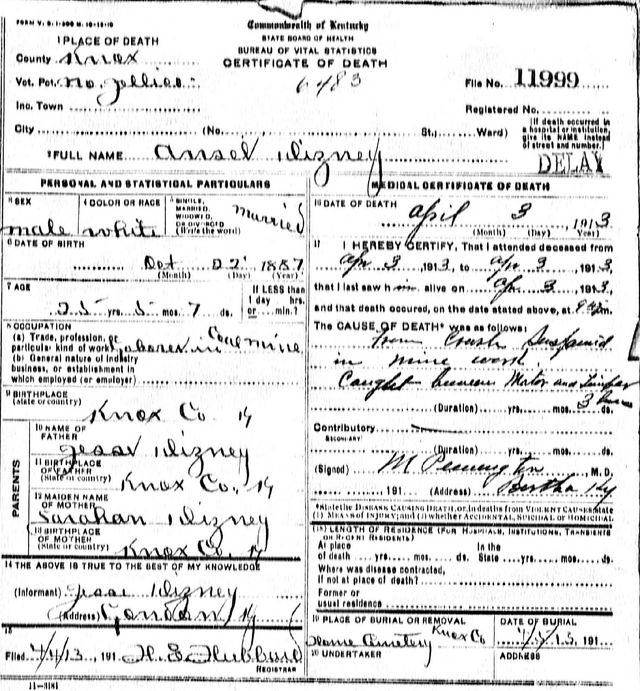 FORM V. S. 1-
Commonwealth of Kentucky
STATE BOARD OF HEALTH
BUREAU OF VITAL STATISTICS
CERTIFICATE OF DEATH
1 PLACE OF DEATH
County Knox
Vot. Pct. No. Jellico
Inc. Town
City (No. St., Ward)
6483
File No. 11999
Registered No.
[If death occurred in a hospital or institution, give its NAME instead of street and number.]
2 FULL NAME Ansel Dizney
DELAY
PERSONAL AND STATISTICAL PARTICULARS
3 SEX male
4 COLOR OR RACE white
5 SINGLE, MARRIED, WIDOWED, OR DIVORCED (Write the word) Married
6 DATE OF BIRTH
Oct 22 1887
(Month) (Day) (Year)
7 AGE
25 yrs. 5 mos. 7 ds.
If LESS than 1 day hrs. or min.?
8 OCCUPATION
(a) Trade, profession, or particular kind of work Laborer in Coal mine
(b) General nature of industry business, or establishment in which employed (or employer)
9 BIRTHPLACE
(State or country)
Knox Co. Ky
PARENTS
10 NAME OF FATHER
Jessе Dizney
11 BIRTHPLACE OF FATHER
(State or country)
Knox Co. Ky
12 MAIDEN NAME OF MOTHER
Sarahan Dizney
13 BIRTHPLACE OF MOTHER
(State or country)
Knox Co. Ky
14 THE ABOVE IS TRUE TO THE BEST OF MY KNOWLEDGE
(Informant) Jesse Dizney
(Address) Ky
15
Filed 4/4/13, 191 H. S. Hubbard
REGISTRAR
11-3181
MEDICAL CERTIFICATE OF DEATH
16 DATE OF DEATH
April 3 1913
(Month) (Day) (Year)
17 I HEREBY CERTIFY, That I attended deceased from
Apr 3, 1913, to Apr 3, 1913,
that I last saw him alive on Ap 3, 1913,
and that death occurred, on the date stated above, at m.
The CAUSE OF DEATH* was as follows:
from Crush
in mine work
Caught between Motor and Timber
(Duration) yrs. mos. ds.
3
Contributory
SECONDARY
(Duration) yrs. mos. ds.
(Signed) M Pennington, M. D.
, 191 (Address) Bertha Ky
*State the DISEASE CAUSING DEATH, or, in deaths from VIOLENT CAUSES state
(1) MEANS OF INJURY; and (2) whether ACCIDENTAL, SUICIDAL OR HOMICIDAL
18 LENGTH OF RESIDENCE (FOR HOSPITALS, INSTITUTIONS, TRANSIENTS OR RECENT RESIDENTS)
At place of death yrs. mos. ds. In the State yrs. mos. ds.
Where was disease contracted,
if not at place of death?
Former or
usual residence
19 PLACE OF BURIAL OR REMOVAL
Cemetery Knox Co
DATE OF BURIAL
191
20 UNDERTAKER
ADDRESS